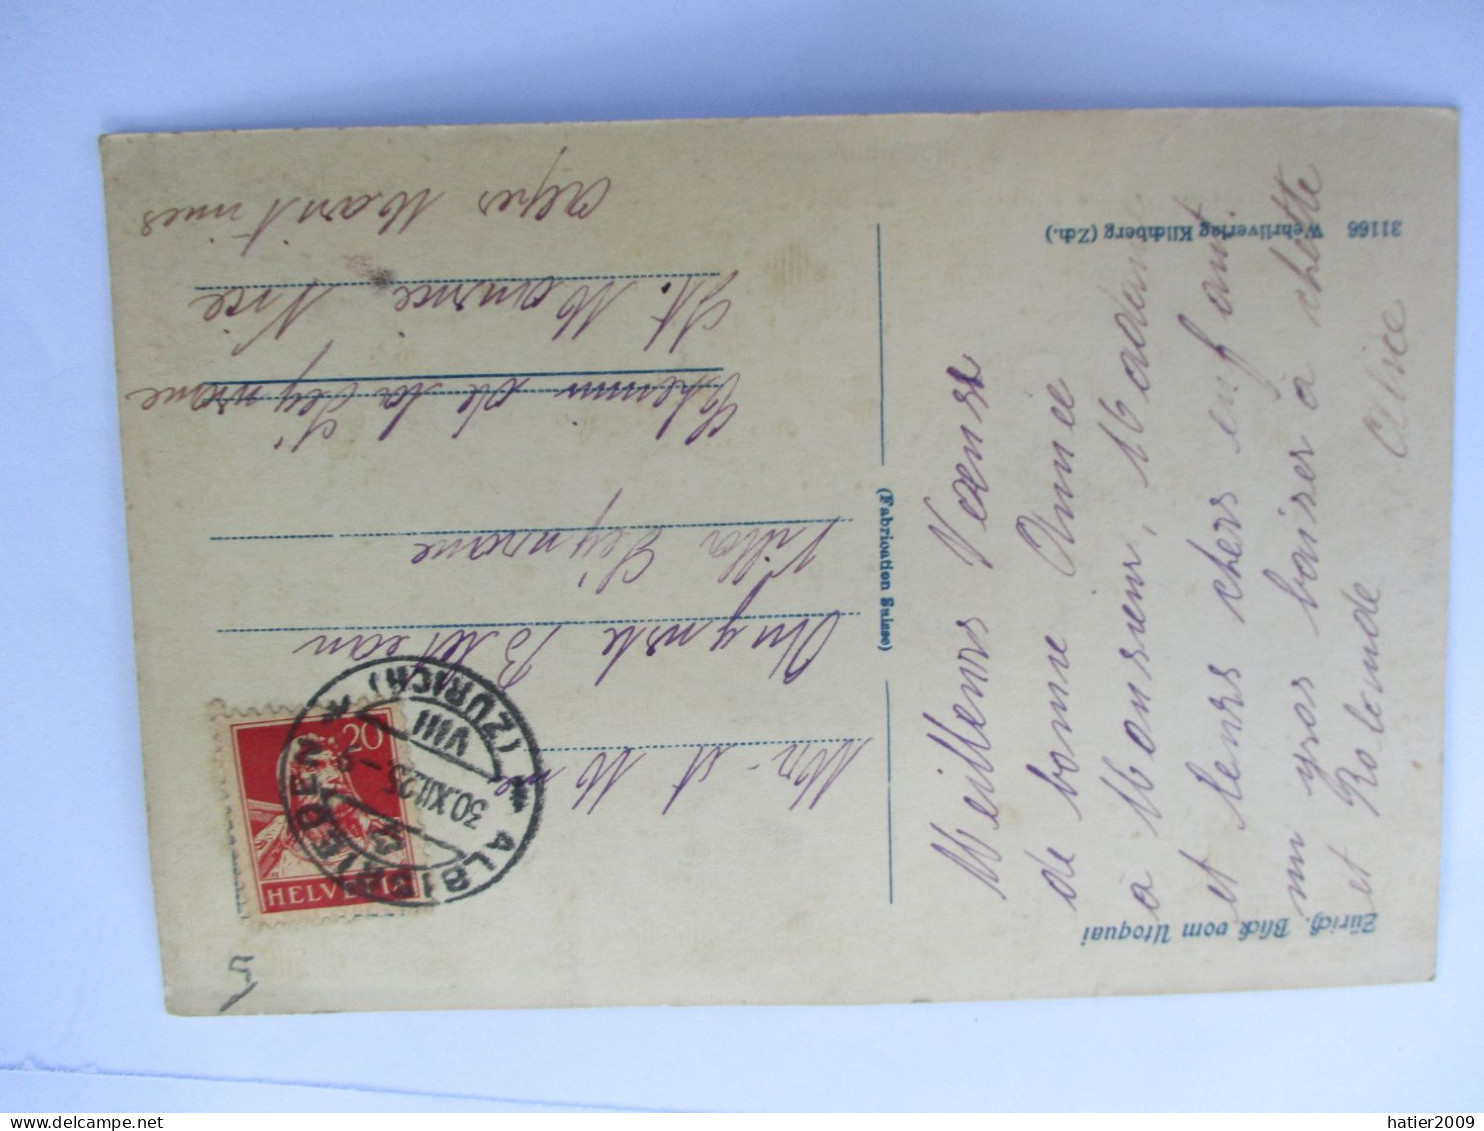 Zürich. Blick vom Utoquai
31166 Wehrliverlag Kilchberg (Zch.)
(Fabrication Suisse)
Meilleurs Voeux
de bonne Année
à Monsieur, Madame
et leurs chers enfant
un gros baiser à
et Rolande
Alice
20
HELVETIA
ALBISRIEDEN
(ZÜRICH)
30.XII.25
VIII
Mr et Mme
Villa
Chemin de la
St. Maurice Nice
Alpes Maritimes
5
delcampe.net
hatier2009